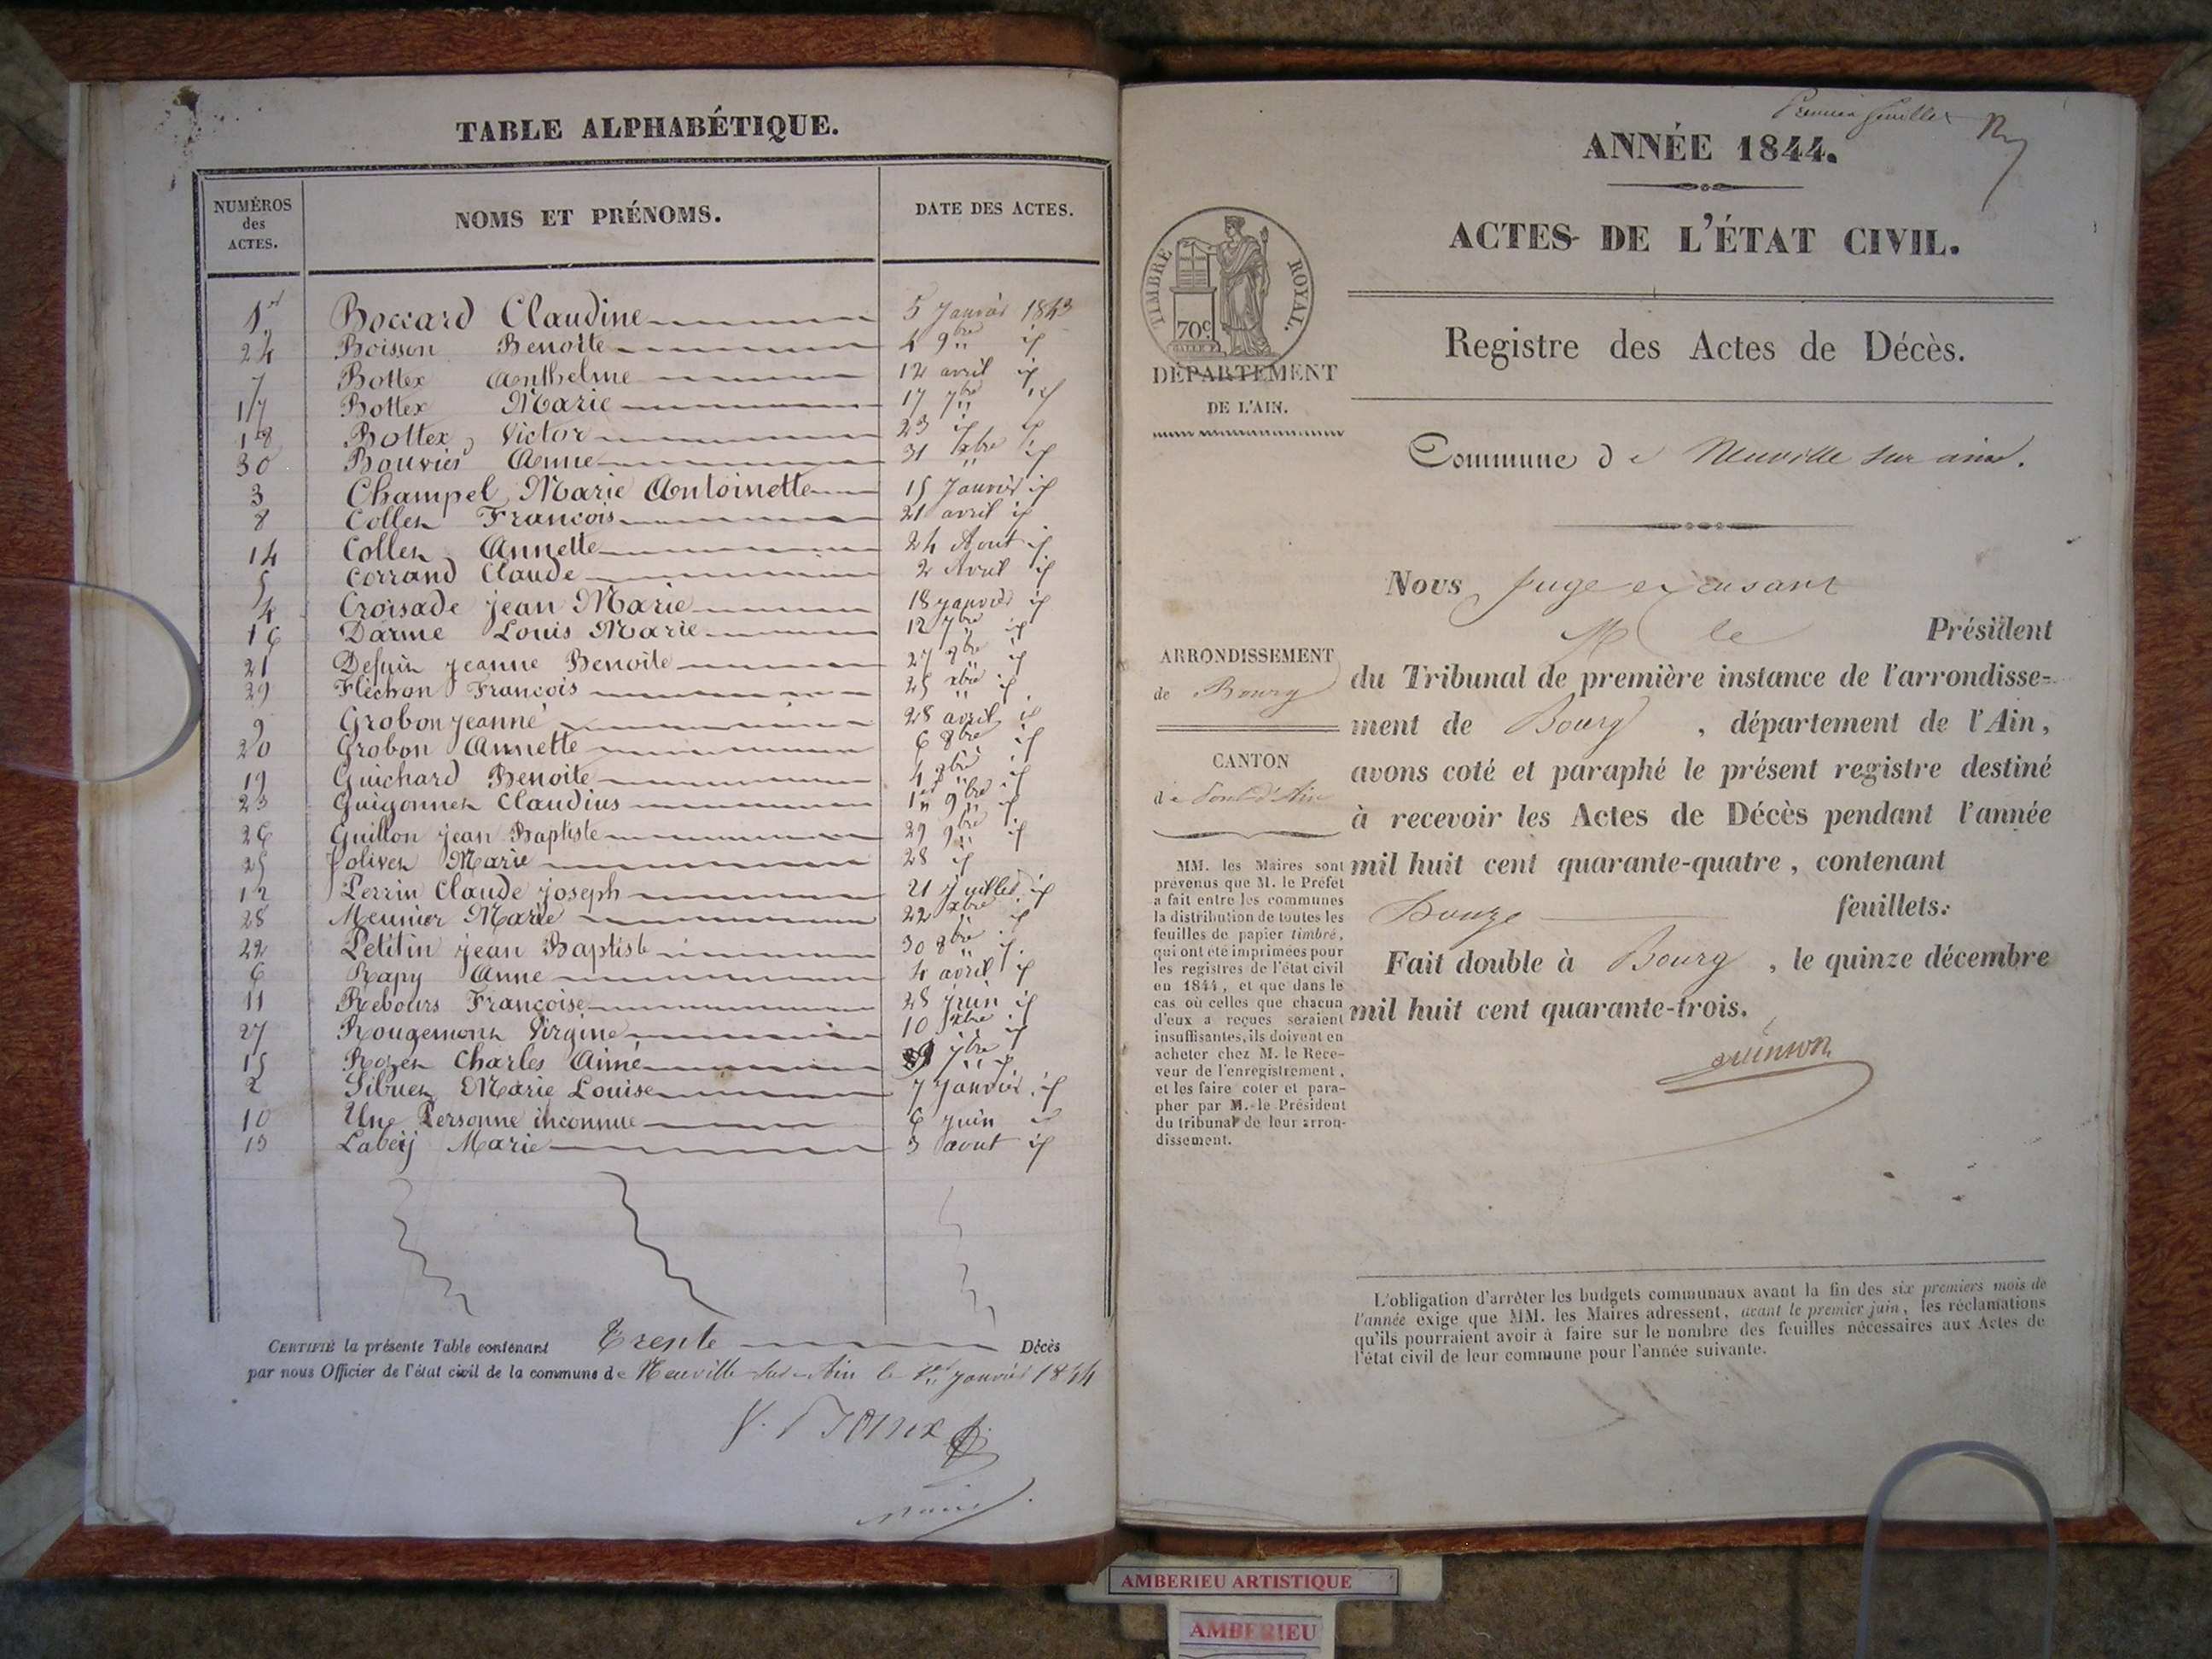 TABLE ALPHABÉTIQUE.
NUMÉROS des ACTES. NOMS ET PRÉNOMS. DATE DES ACTES.
1er Boccard Claudine 5 Janvier 1843
24 Boisson Benoite 4 9bre id
7 Bottex Anthelme 12 avril id
17 Bottex Marie 17 7bre id
18 Bottex Victor 23 id id
30 Bouvier Anne 31 xbre id
3 Champel Marie Antoinette 15 Janvier id
8 Collet François 21 avril id
14 Collet Annette 24 Aout id
5 Corrand Claude 2 Avril id
4 Croisade jean Marie 18 janvier id
16 Darme Louis Marie 12 7bre id
21 jeanne Benoite 27 8bre id
29 Fléchon François 25 xbre id
9 Grobon jeanne 28 avril id
20 Grobon Annette 6 8bre id
19 Guichard Benoite 4 8bre id
23 Guigonnet Claudius 1er 9bre id
26 Guillon jean Baptiste 29 9bre id
25 Jolivet Marie 28 id
12 Perrin Claude joseph 21 juillet id
28 Meunier Marie 22 xbre id
22 Petitin jean Baptiste 30 8bre id
6 Rapy Anne 4 avril id
11 Rebours Françoise 28 juin id
27 Rougemont Virgine 10 xbre id
15 Rozet Charles Aimé 7bre id
2 Sibuet Marie Louise 7 janvier id
10 Une Personne inconnue 6 juin id
13 Labeij Marie 3 aout id
CERTIFIÉ la présente Table contenant Trente Décès
par nous Officier de l'état civil de la commune de Neuville sur Ain le 1er janvier 1844
maire
Premier feuillet
ANNÉE 1844.
ACTES DE L'ÉTAT CIVIL.
TIMBRE ROYAL.
70c
DÉPARTEMENT
DE L'AIN.
Registre des Actes de Décès.
Commune de Neuville sur ain.
ARRONDISSEMENT
de Bourg
CANTON
de Pont d'Ain
MM. les Maires sont
prévenus que M. le Préfet
a fait entre les communes
la distribution de toutes les
feuilles de papier timbré,
qui ont été imprimées pour
les registres de l'état civil
en 1844, et que dans le
cas où celles que chacun
d'eux a reçues seraient
insuffisantes, ils doivent en
acheter chez M. le Rece-
veur de l'enregistrement,
et les faire coter et para-
pher par M. le Président
du tribunal de leur arron-
dissement.
Nous Juge
M le Président
du Tribunal de première instance de l'arrondisse-
ment de Bourg , département de l'Ain,
avons coté et paraphé le présent registre destiné
à recevoir les Actes de Décès pendant l'année
mil huit cent quarante-quatre, contenant
Douze feuillets.
Fait double à Bourg , le quinze décembre
mil huit cent quarante-trois.
L'obligation d'arrêter les budgets communaux avant la fin des six premiers mois de
l'année exige que MM. les Maires adressent, avant le premier juin, les réclamations
qu'ils pourraient avoir à faire sur le nombre des feuilles nécessaires aux Actes de
l'état civil de leur commune pour l'année suivante.
AMBERIEU ARTISTIQUE
AMBERIEU